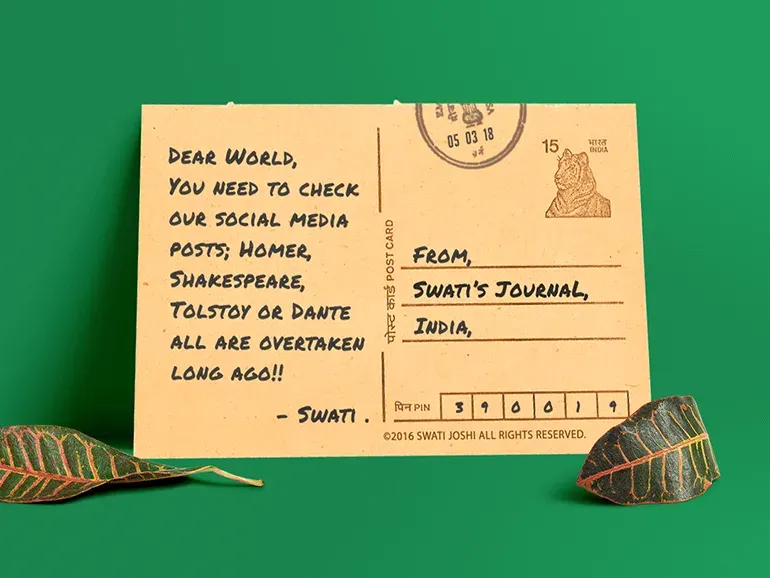 DEAR WORLD,
YOU NEED TO CHECK
OUR SOCIAL MEDIA
POSTS; HOMER,
SHAKESPEARE,
TOLSTOY OR DANTE
ALL ARE OVERTAKEN
LONG AGO!!
- SWATI.
पोस्ट कार्ड POST CARD
05 03 18
15 भारत
INDIA
FROM,
SWATI'S JOURNAL,
INDIA,
पिन PIN 3 9 0 0 1 9
©2016 SWATI JOSHI ALL RIGHTS RESERVED.